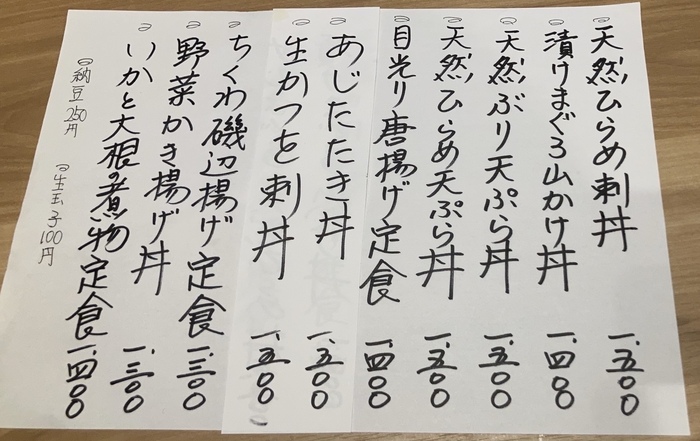 天然ひらめ刺丼 一、五〇〇
漬けまぐろ山かけ丼 一、四〇〇
天然ぶり天ぷら丼 一、五〇〇
天然ひらめ天ぷら丼 一、五〇〇
目光り唐揚げ定食 一、四〇〇
あじたたき丼 一、五〇〇
生かつを刺丼 一、五〇〇
ちくわ磯辺揚げ定食 一、三〇〇
野菜かき揚げ丼 一、三〇〇
いかと大根の煮物定食 一、四〇〇
納豆250円
生玉子100円